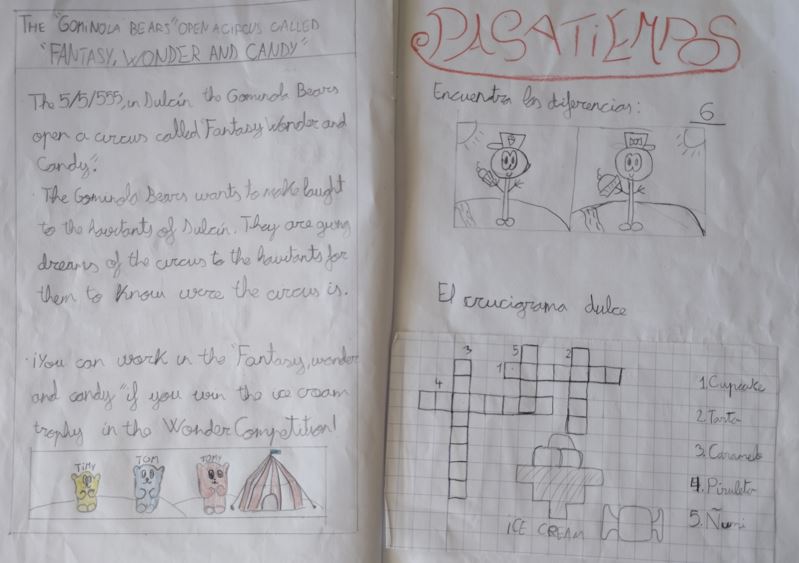 THE "GOMINOLA BEARS" OPEN A CIRCUS CALLED
"FANTASY, WONDER AND CANDY"
The 5/5/555, in Dulcín the Gominola Bears
open a circus called Fantasy Wonder and
Candy".
The Gominola Bears wants to make laught
to the havitants of Dulcín. They are giving
dreams of the circus to the havitants for
them to know were the circus is.
¡You can work in the "Fantasy, wonder
and candy" if you win the ice cream
trophy in the Wonder Competition!
TIMY
TOM
TOMY
PASATIEMPOS
Encuentra las diferencias: 6
El crucigrama dulce
3
5
2
1
4
1. Cupcake
2. Tarta
3. Caramelo
4. Piruleta
5. Ñumi
ICE CREAM